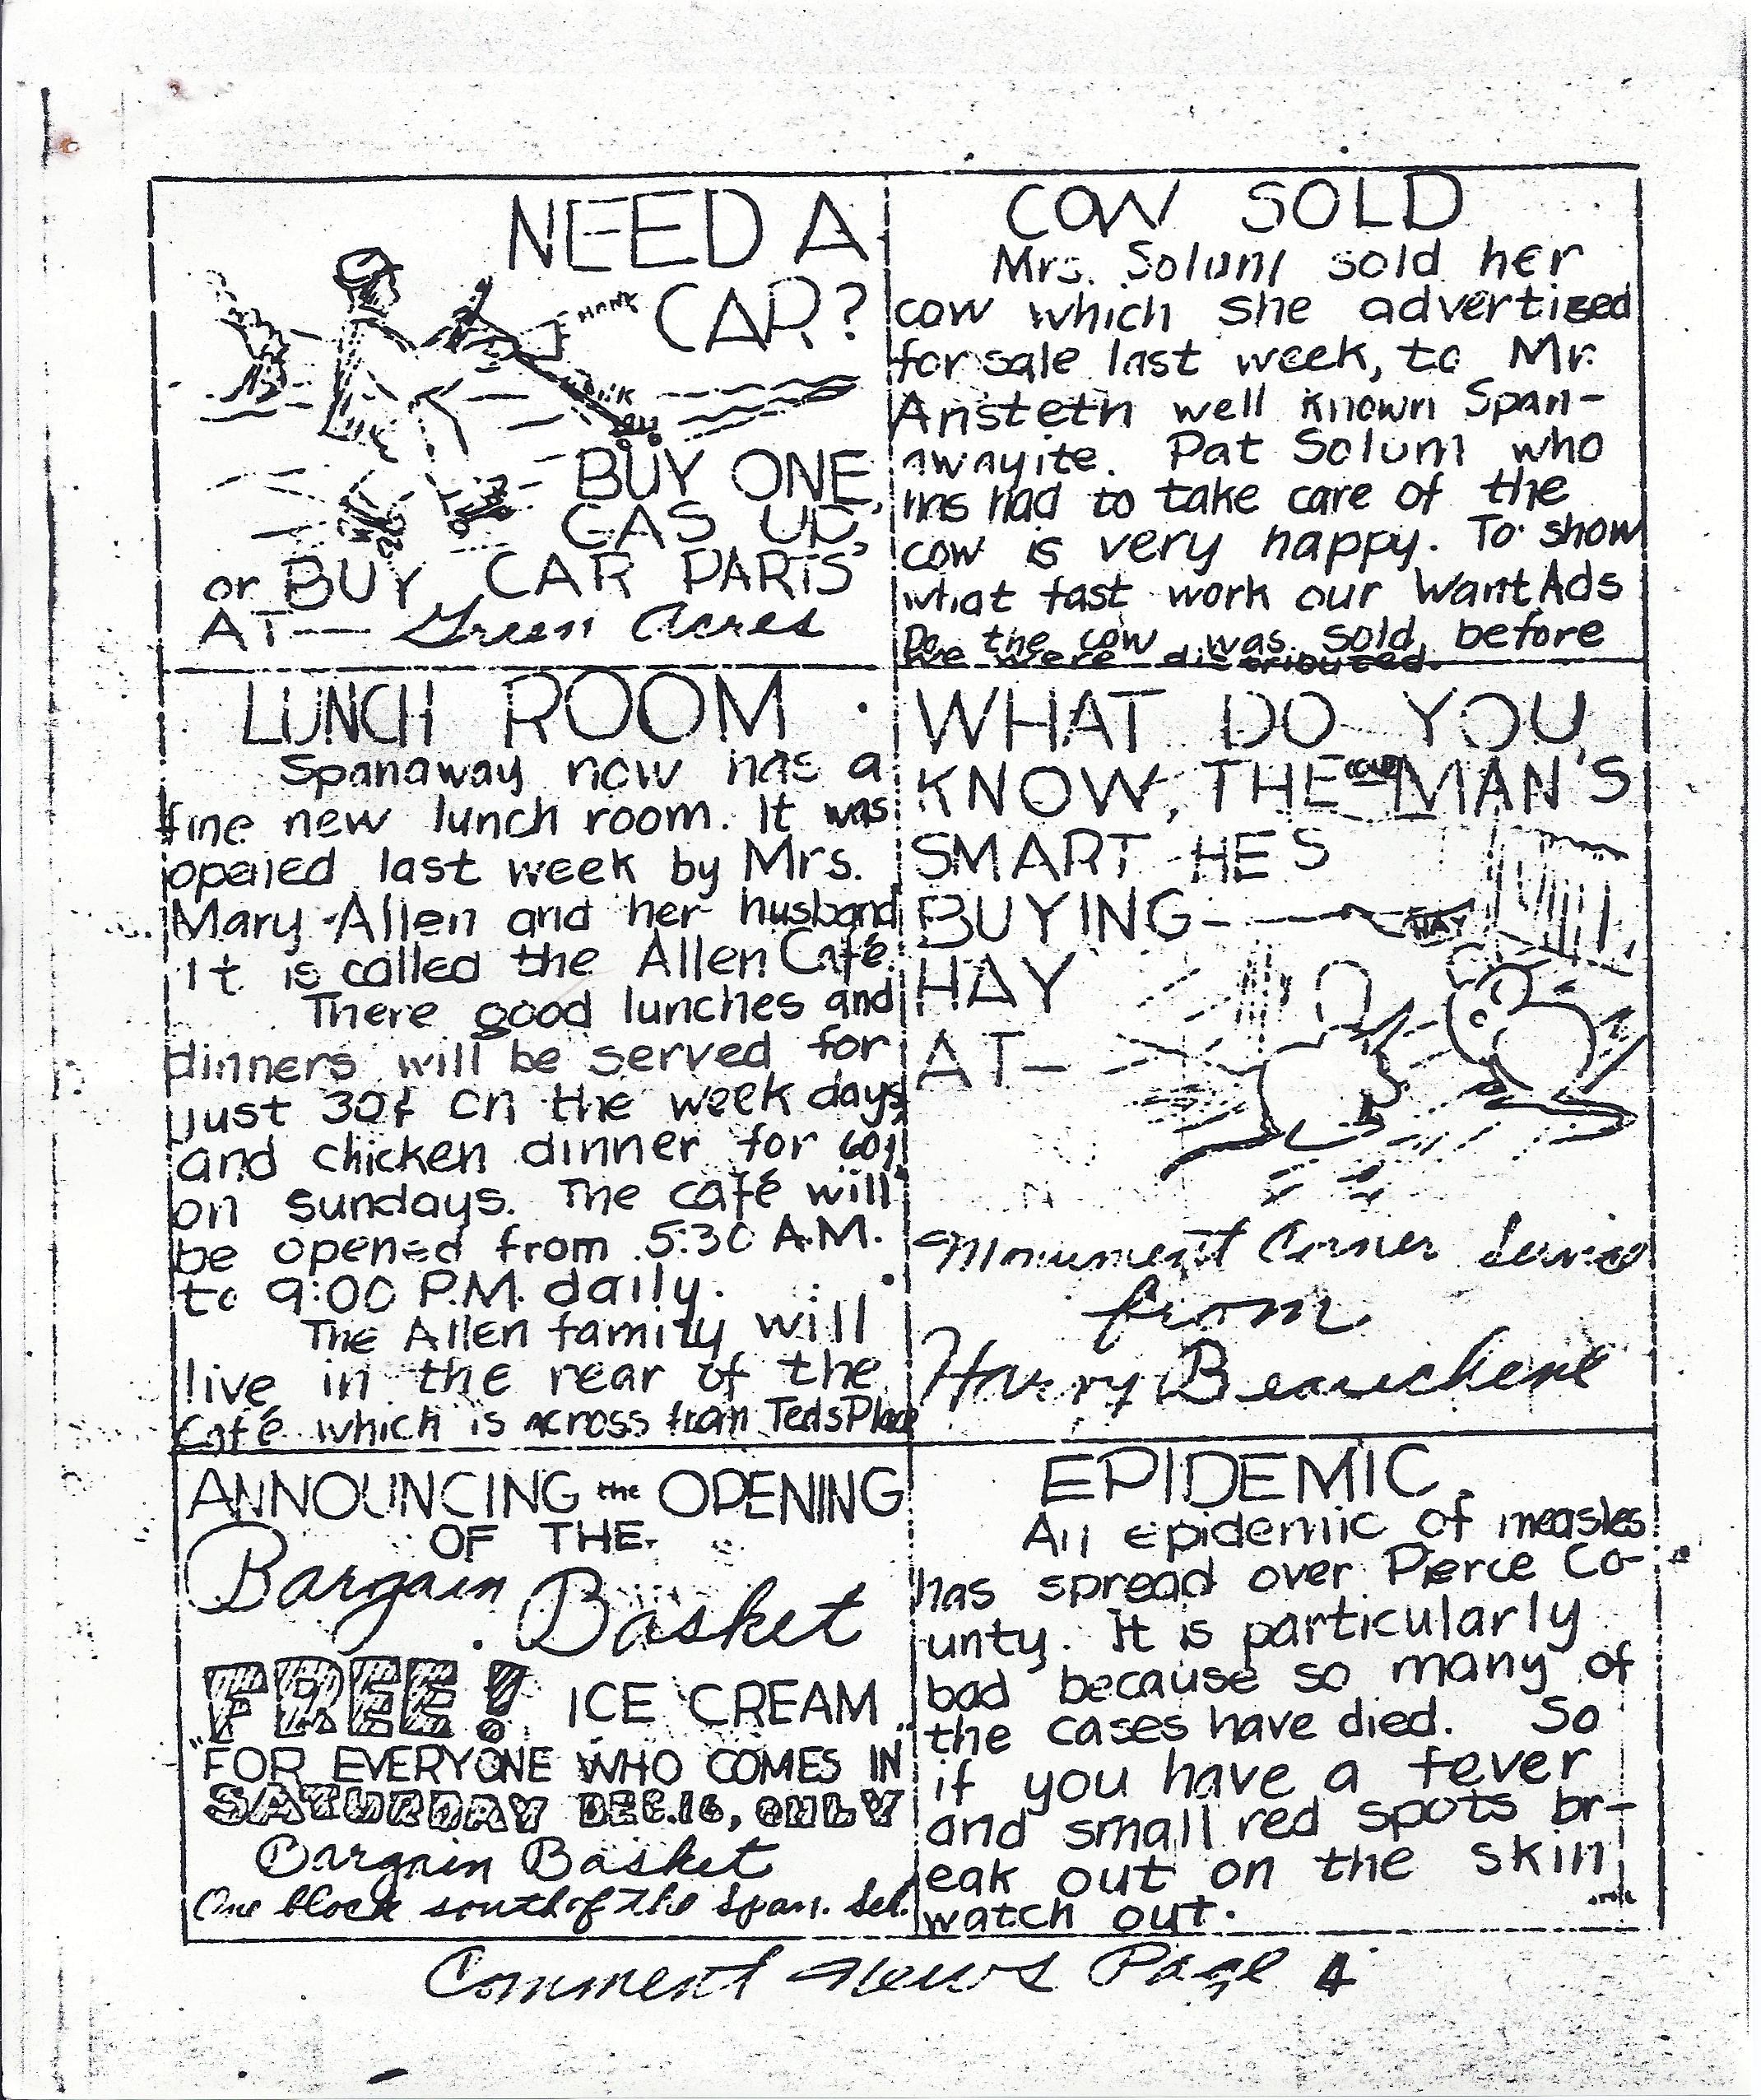 NEED A
CAR?
HONK
HONK
BUY ONE,
GAS UP,
or BUY CAR PARTS
AT— Green Acres
COW SOLD
Mrs. Solum sold her
cow which she advertized
for sale last week, to Mr.
Ansteth well known Span-
awayite. Pat Solum who
has had to take care of the
cow is very happy. To show
what fast work our Want Ads
Do, the cow was sold before
we were distributed.
LUNCH ROOM
Spanaway now has a
fine new lunch room. It was
opened last week by Mrs.
Mary Allen and her husband
It is called the Allen Café.
There good lunches and
dinners will be served for
just 30¢ on the week days
and chicken dinner for 60¢
on sundays. The café will
be opened from 5:30 A.M.
to 9:00 P.M. daily.
The Allen family will
live in the rear of the
Café which is across from Teds Place
WHAT DO YOU
KNOW, THE MAN'S
SMART HES
BUYING——
HAY
HAY
AT—
Monument Corner Service
from
Harry Beauchene
ANNOUNCING the OPENING
OF THE
Bargain Basket
FREE! ICE CREAM
"FOR EVERYONE WHO COMES IN"
SATURDAY DEC. 16, ONLY
Bargain Basket
One block south of the Span. Sch.
EPIDEMIC
An epidemic of measles
has spread over Pierce Co-
unty. It is particularly
bad because so many of
the cases have died. So
if you have a fever
and small red spots br-
eak out on the skin
watch out.
Comment News Page 4